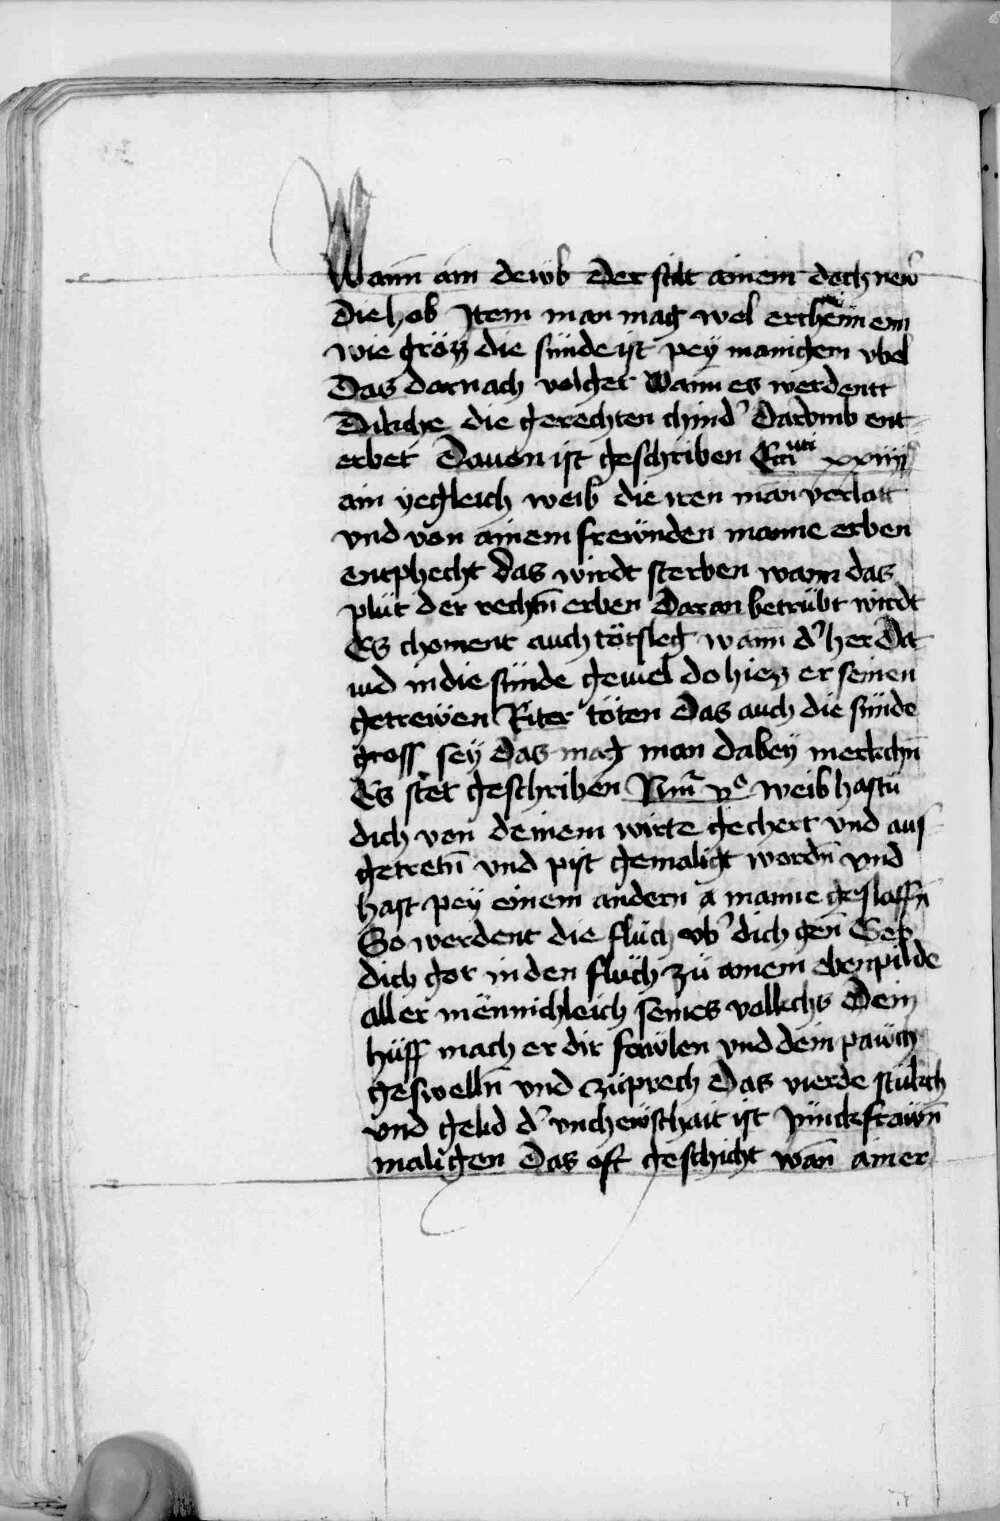 Wann ain dewb der stilt ainem doch newr
die hab Item man mag wol erchennen
wie gröz die sünde ist pey manigem vbel
Das darnach volget Wann es werdentt
Dikche die gerechten chind' Darvmb ent-
erbet Dauon ist geschriben xxiiii
ain yegleich weib die iren man verlatt
vnd von ainem frewnden manne erben
entphecht das wirdt sterben wann das
plüt der rechtn̄ erben Daran betrübt wirdt
Es choment auch tötsleg wann d' her Da-
uid in die sünde geuiel do hiez er seinen
getrewen Riter töten Das auch die sünde
gross sey Das mag man dabey merkchn̄
Es stet geschriben Nm̄ vo weib hastu
dich von deinem wirte gechert vnd aus-
getretn̄ vnd pist gemaligt wordn̄ vnd
hast pey einem andern a manne geslaffn̄
So werdent die fluch vb' dich gen̄ Geb
dich got in den flüch zü ainem ebenpilde
aller männichleich seines volkchs Dein
hüff mach er dir fawlen vnd dein pawch
geswelln̄ vnd züprech Das vierde stukch
vnd gelid d' vnchewschait ist Junckfrawn̄
maligen Das oft geschicht wan̄ ainer